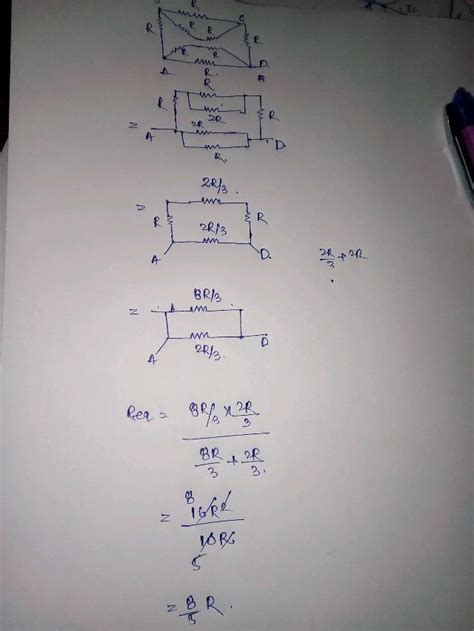 R
R
R
R
R
R
C
R
A
R
D
B
R
R
2R
R
=
A
2R
D.
R
2R/3
=
R
R
2R/3
A
D.
2R/3 + 2R
8R/3
=
A
2R/3.
D
Req = 8R/3 x 2R/3
8R/3 + 2R/3.
8
= 16R2
10R6
5
= 8/5 R.